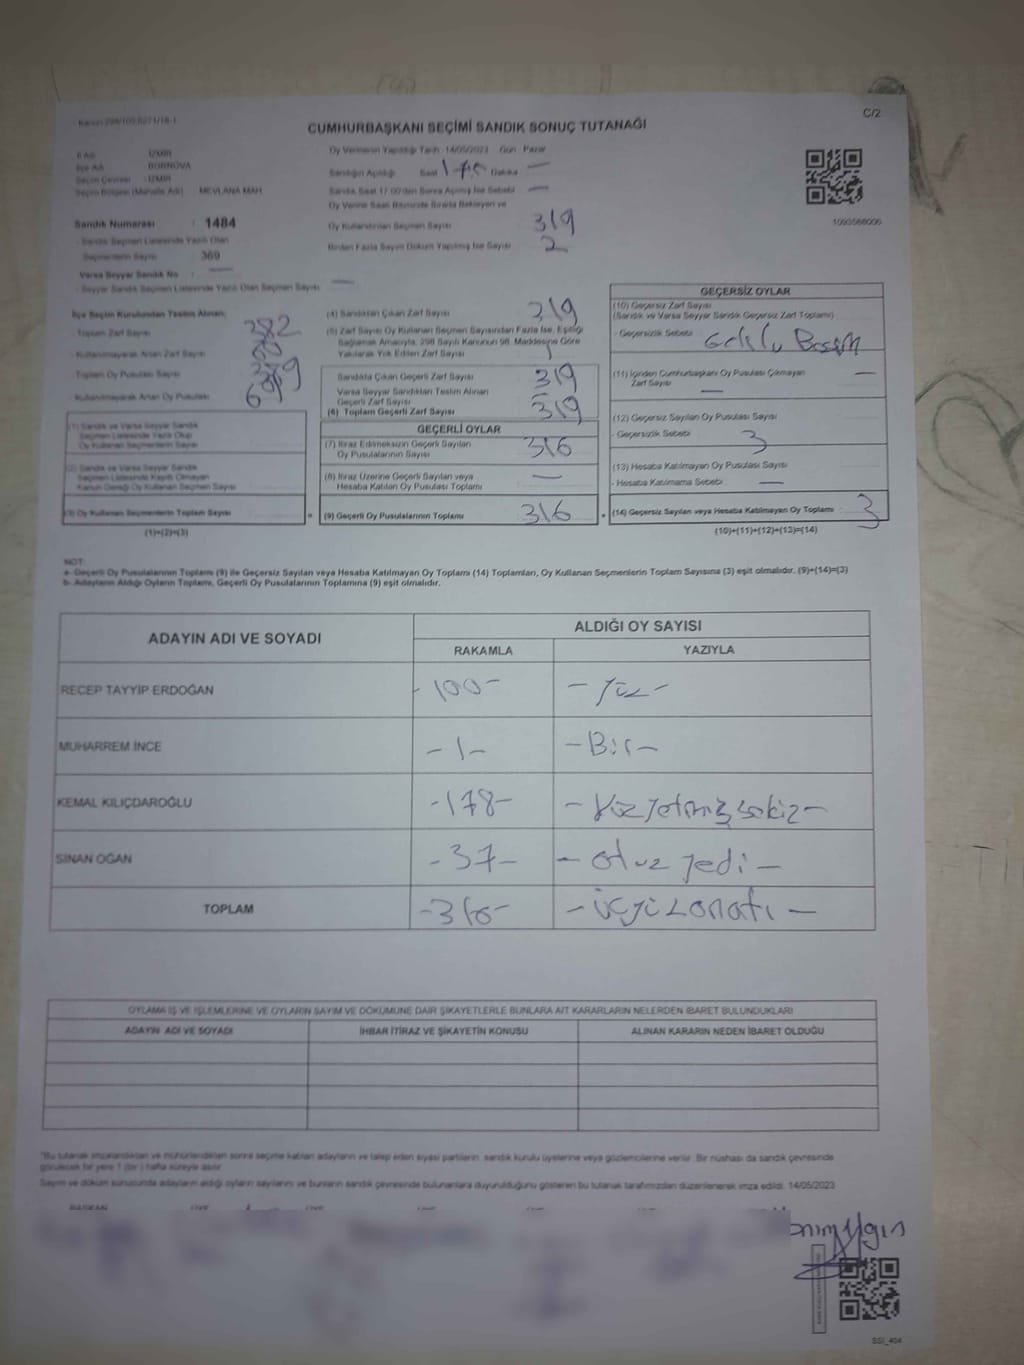 C/2
CUMHURBAŞKANI SEÇİMİ SANDIK SONUÇ TUTANAĞI
İl Adı : İZMİR
İlçe Adı : BORNOVA
Seçim Çevresi : İZMİR
Seçim Bölgesi (Mahalle Adı) : MEVLANA MAH.
Oy Vermenin Yapıldığı Tarih : 14/05/2023 Gün : Pazar
Sandığın Açıldığı Saat Dakika —
Sandık Saat 17:00'den Sonra Açılmış İse Sebebi —
Oy Verme Saati Bitiminde Sırada Bekleyen ve
Oy Kullandırılan Seçmen Sayısı 319
Birden Fazla Sayım Döküm Yapılmış İse Sayısı 2
1093568006
Sandık Numarası : 1484
- Sandık Seçmen Listesinde Yazılı Olan
Seçmenlerin Sayısı : 369
Varsa Seyyar Sandık No : —
- Seyyar Sandık Seçmen Listesinde Yazılı Olan Seçmen Sayısı : —
İlçe Seçim Kurulundan Teslim Alınan;
Toplam Zarf Sayısı 382
- Kullanılmayarak Artan Zarf Sayısı
Toplam Oy Pusulası Sayısı
- Kullanılmayarak Artan Oy Pusulası
(1) Sandık ve Varsa Seyyar Sandık
Seçmen Listesinde Yazılı Olup
Oy Kullanan Seçmenlerin Sayısı
(2) Sandık ve Varsa Seyyar Sandık
Seçmen Listesinde Kayıtlı Olmayan
Kanun Gereği Oy Kullanan Seçmen Sayısı
(3) Oy Kullanan Seçmenlerin Toplam Sayısı
(1)+(2)=(3)
(4) Sandıktan Çıkan Zarf Sayısı 319
(5) Zarf Sayısı Oy Kullanan Seçmen Sayısından Fazla İse, Eşitliği
Sağlamak Amacıyla, 298 Sayılı Kanunun 98. Maddesine Göre
Yakılarak Yok Edilen Zarf Sayısı
Sandıkta Çıkan Geçerli Zarf Sayısı 319
Varsa Seyyar Sandıktan Teslim Alınan
Geçerli Zarf Sayısı
(6) Toplam Geçerli Zarf Sayısı 319
GEÇERLİ OYLAR
(7) İtiraz Edilmeksizin Geçerli Sayılan
Oy Pusulalarının Sayısı 316
(8) İtiraz Üzerine Geçerli Sayılan veya
Hesaba Katılan Oy Pusulası Toplamı —
= (9) Geçerli Oy Pusulalarının Toplamı 316
GEÇERSİZ OYLAR
(10) Geçersiz Zarf Sayısı
(Sandık ve Varsa Seyyar Sandık Geçersiz Zarf Toplamı)
- Geçersizlik Sebebi :
(11) İçinden Cumhurbaşkanı Oy Pusulası Çıkmayan
Zarf Sayısı —
(12) Geçersiz Sayılan Oy Pusulası Sayısı
- Geçersizlik Sebebi : 3
(13) Hesaba Katılmayan Oy Pusulası Sayısı
- Hesaba Katılmama Sebebi : —
+ (14) Geçersiz Sayılan veya Hesaba Katılmayan Oy Toplamı : 3
(10)+(11)+(12)+(13)=(14)
NOT:
a- Geçerli Oy Pusulalarının Toplamı (9) ile Geçersiz Sayılan veya Hesaba Katılmayan Oy Toplamı (14) Toplamları, Oy Kullanan Seçmenlerin Toplam Sayısına (3) eşit olmalıdır. (9)+(14)=(3)
b- Adayların Aldığı Oyların Toplamı, Geçerli Oy Pusulalarının Toplamına (9) eşit olmalıdır.
ADAYIN ADI VE SOYADI
ALDIĞI OY SAYISI
RAKAMLA YAZIYLA
RECEP TAYYİP ERDOĞAN -100- -Yüz-
MUHARREM İNCE -1- -Bir-
KEMAL KILIÇDAROĞLU -178- -Yüzyetmişsekiz-
SİNAN OĞAN -37- -otuz yedi-
TOPLAM -316- -üçyüzonaltı-
OYLAMA İŞ VE İŞLEMLERİNE VE OYLARIN SAYIM VE DÖKÜMÜNE DAİR ŞİKAYETLERLE BUNLARA AİT KARARLARIN NELERDEN İBARET BULUNDUKLARI
ADAYIN ADI VE SOYADI İHBAR İTİRAZ VE ŞİKAYETİN KONUSU ALINAN KARARIN NEDEN İBARET OLDUĞU
"Bu tutanak imzalandıktan ve mühürlendikten sonra seçime katılan adayların ve talep eden siyasi partilerin, sandık kurulu üyelerine veya gözlemcilerine verilir. Bir nüshası da sandık çevresinde
görülecek bir yere 1 (bir ) hafta süreyle asılır.
Sayım ve döküm sonucunda adayların aldığı oyların sayılarını ve bunların sandık çevresinde bulunanlara duyurulduğunu gösteren bu tutanak tarafımızdan düzenlenerek imza edildi. 14/05/2023
BAŞKAN ÜYE ÜYE ÜYE ÜYE ÜYE
SSİ_404